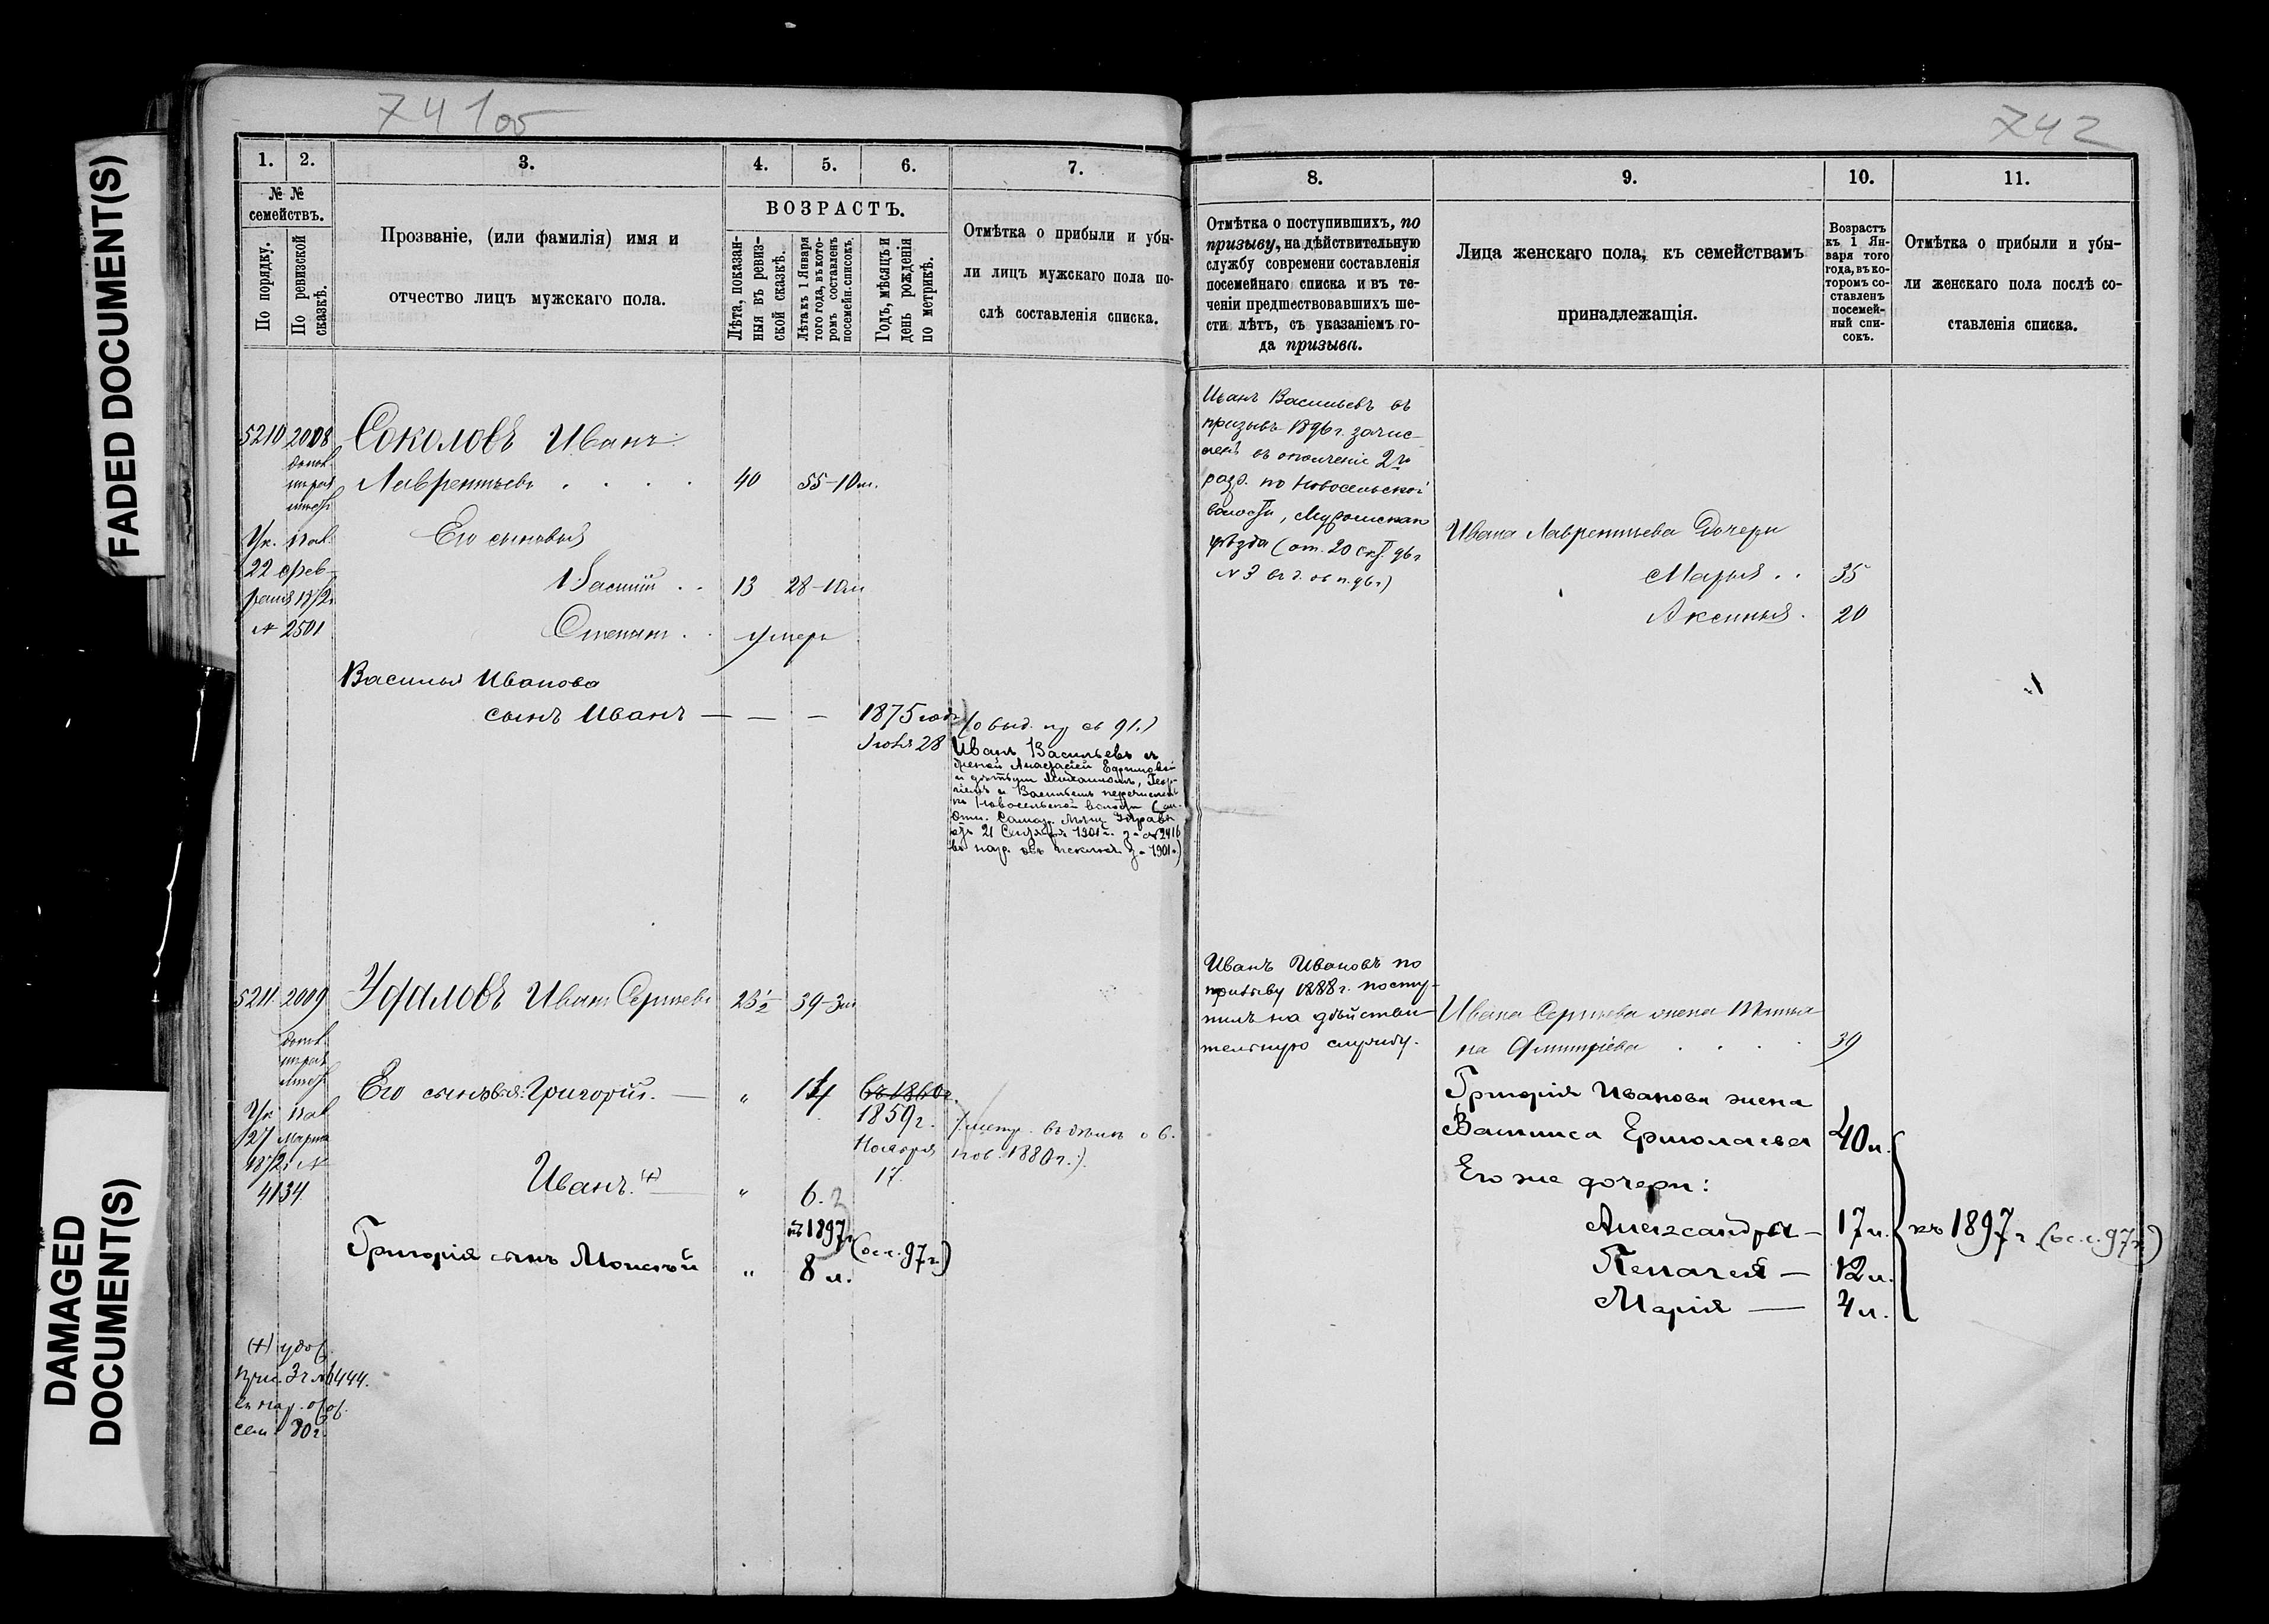 FADED DOCUMENT(S)
DAMAGED
DOCUMENT(S)
741об
1.
2.
3.
4.
5.
6.
7.
№ №
семействъ.
По порядку.
По ревизской
сказкѣ.
Прозваніе, (или фамилія) имя и
отчество лицъ мужскаго пола.
ВОЗРАСТЪ.
Лѣта, показан-
ныя въ ревиз-
ской сказкѣ.
Лѣта къ 1 Января
того года, въ кото-
ромъ составленъ
посемейн. списокъ.
Годъ, мѣсяцъ и
день рожденія
по метрикѣ.
Отмѣтка о прибыли и убы-
ли лицъ мужскаго пола по-
слѣ составленія списка.
5210 2008 Соколовъ Иванъ
Лаврентьевъ . . . . 40 55-10м.
Ук. Пал.
22 фев-
раля 1872г
№ 2501
Его сыновья
Василій . . 13 28-10м
Степанъ . . умеръ
Василья Иванова
сынъ Иванъ — — — 1875 года
Іюня 28
Иванъ Васильевъ съ
женой Анастасіей Ефимовой
и дѣтьми Михаиломъ, Геор-
гіемъ и Васильемъ перечисленъ
въ Новосельской волости
21 Сентября 1901 г. за №2416
5211 2009 Удаловъ Иванъ Сергѣевъ 23½ 39-3м
Ук. Пал
27 Марта
1872г №
4134
Его сыновья: Григорій. — " 14 въ 1860г.
1859г.
Ноября
17.
нов. 1880г.).
Иванъ (+) — " 6.
къ 1897г (ос.с.97г.)
Григорія сынъ Моисей " 8 л.
(+)
444.
сем. 90г.
742
8.
9.
10.
11.
Отмѣтка о поступившихъ, по
призыву, на дѣйствительную
службу современи составленія
посемейнаго списка и въ те-
ченіи предшествовавшихъ ше-
сти лѣтъ, съ указаніемъ го-
да призыва.
Лица женскаго пола, къ семействамъ
принадлежащія.
Возрастъ
къ 1 Ян-
варя того
года, въ ко-
торомъ со-
ставленъ
посемей-
ный спи-
сокъ.
Отмѣтка о прибыли и убы-
ли женскаго пола послѣ со-
ставленія списка.
Иванъ Васильевъ въ
призывъ 1896г. зачис-
ленъ въ ополченіе 2го
разр. по Новосельской
волости,
уѣзда (от. 20 96г
№ 3
Ивана Лаврентьева дочери
Марья . . 35
Аксинья . 20
Иванъ Ивановъ по
призыву 1888г. посту-
пилъ на дѣйстви-
тельную службу.
Ивана Сергѣева жена Татья-
на Дмитріева . . . . 39
Григорія Иванова жена
Василиса Ермолаева 40 л.
Его же дочери:
Александра — 17 л.
Пелагея — 12 л.
Марія — 4 л.
къ 1897г (ос.с.97г.)